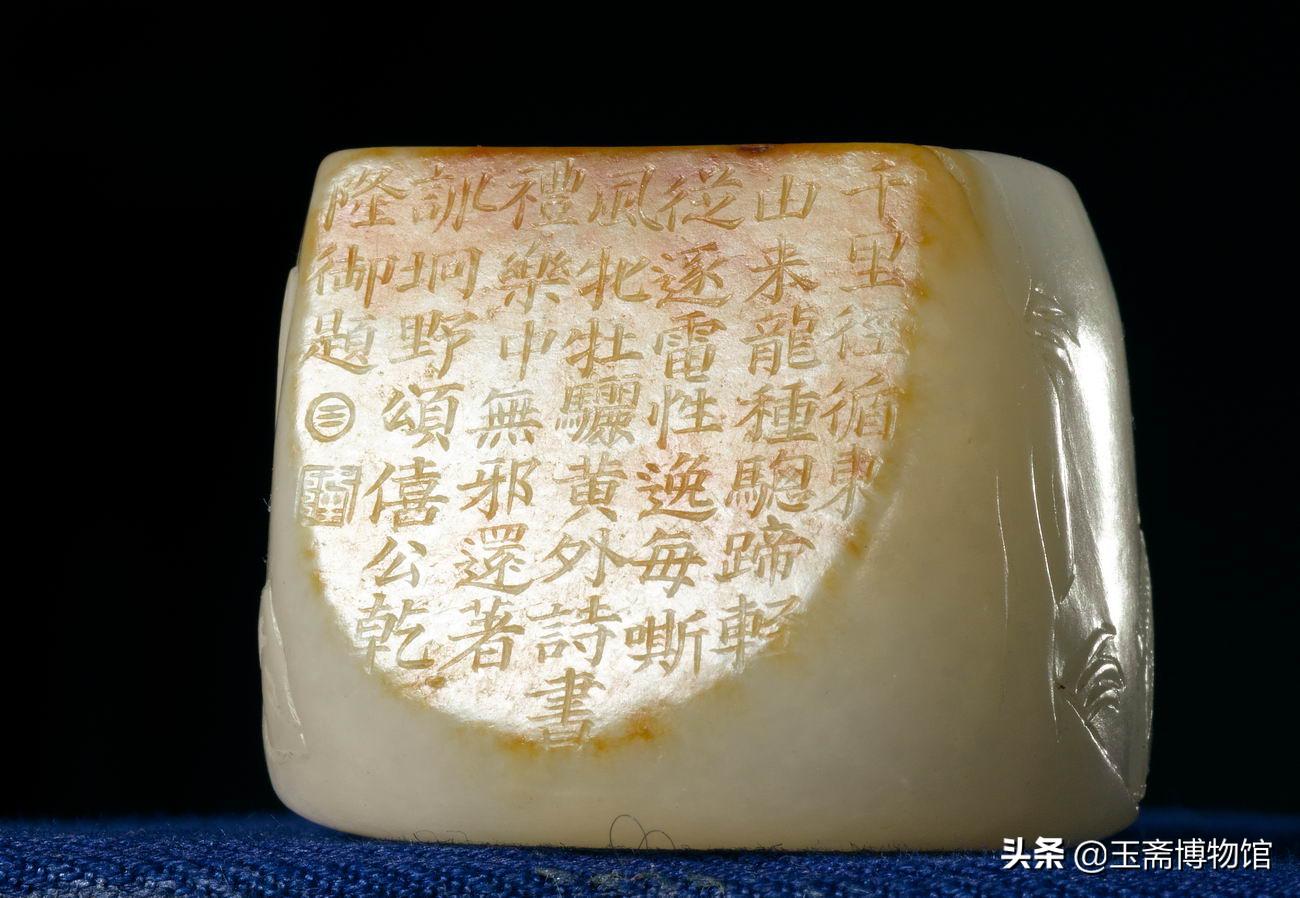 千里徑循東
山来龍種驄蹄輕
從逐電性逸每嘶
風牝牡驪黄外詩書
禮樂中無邪還著
訓坰野頌僖公乾
隆御題
☰
头条 @玉斋博物馆